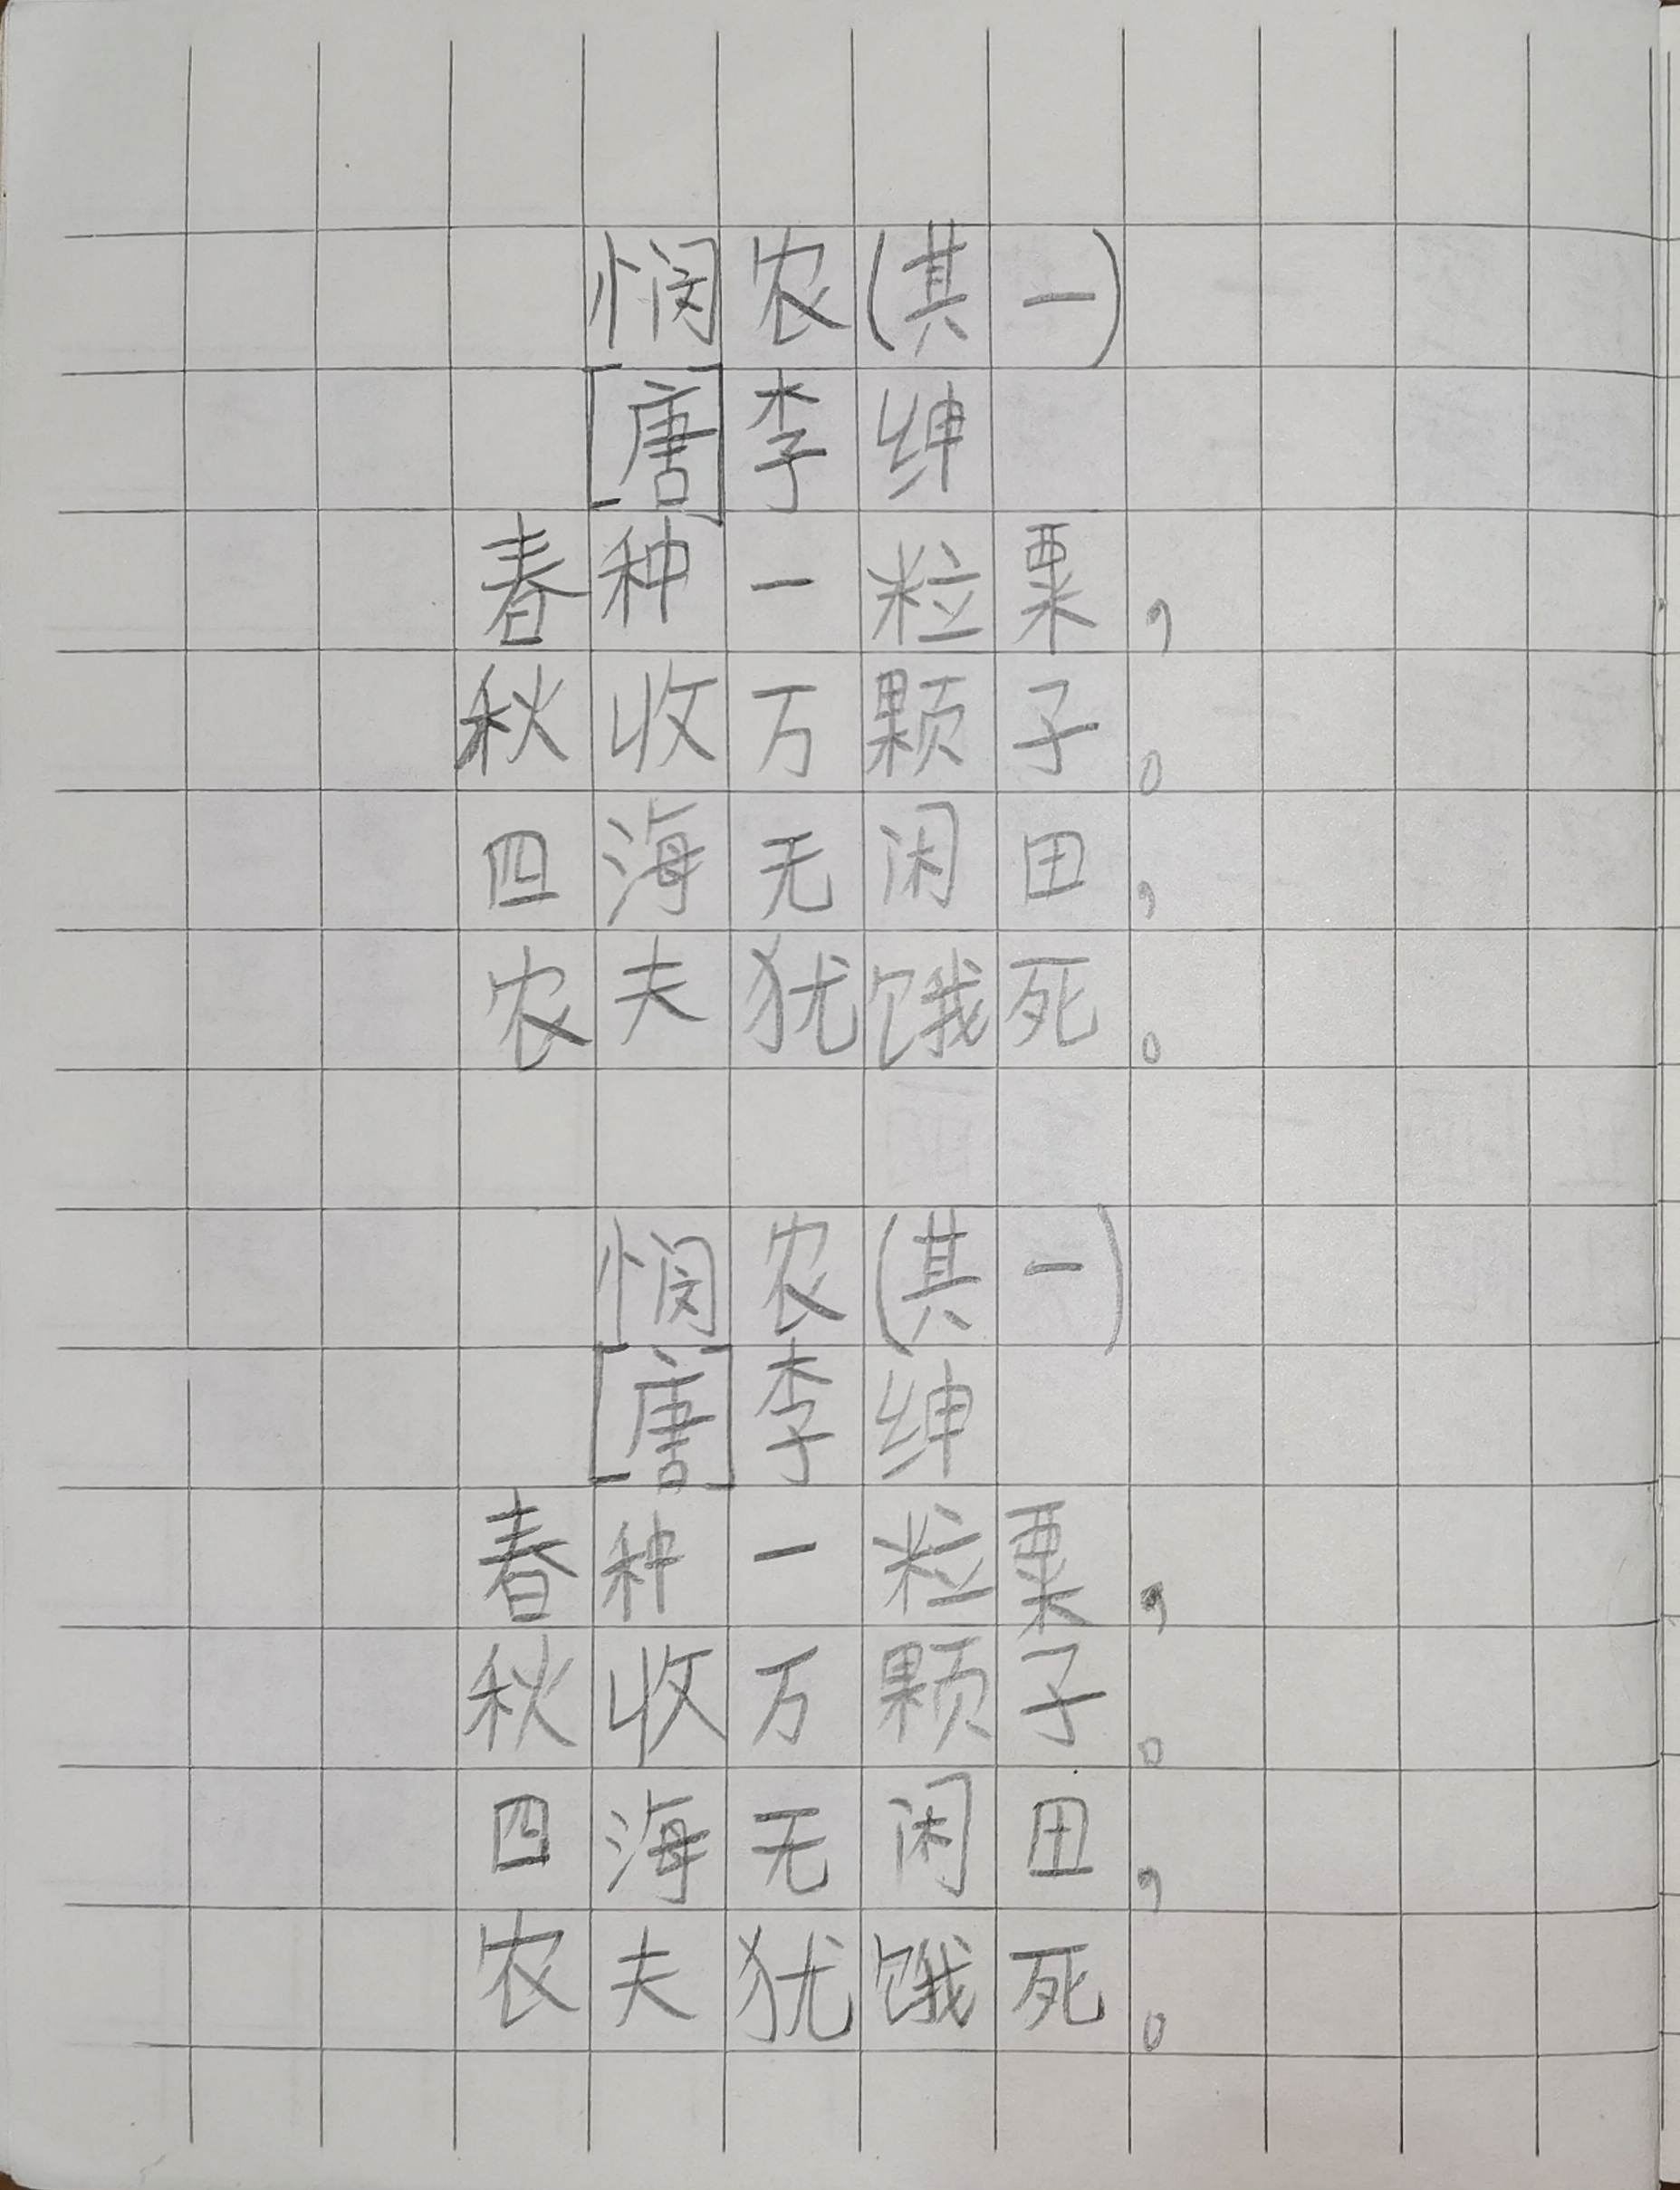 悯农(其一)
[唐]李绅
春种一粒粟，
秋收万颗子。
四海无闲田，
农夫犹饿死。
悯农(其一)
[唐]李绅
春种一粒粟，
秋收万颗子。
四海无闲田，
农夫犹饿死。